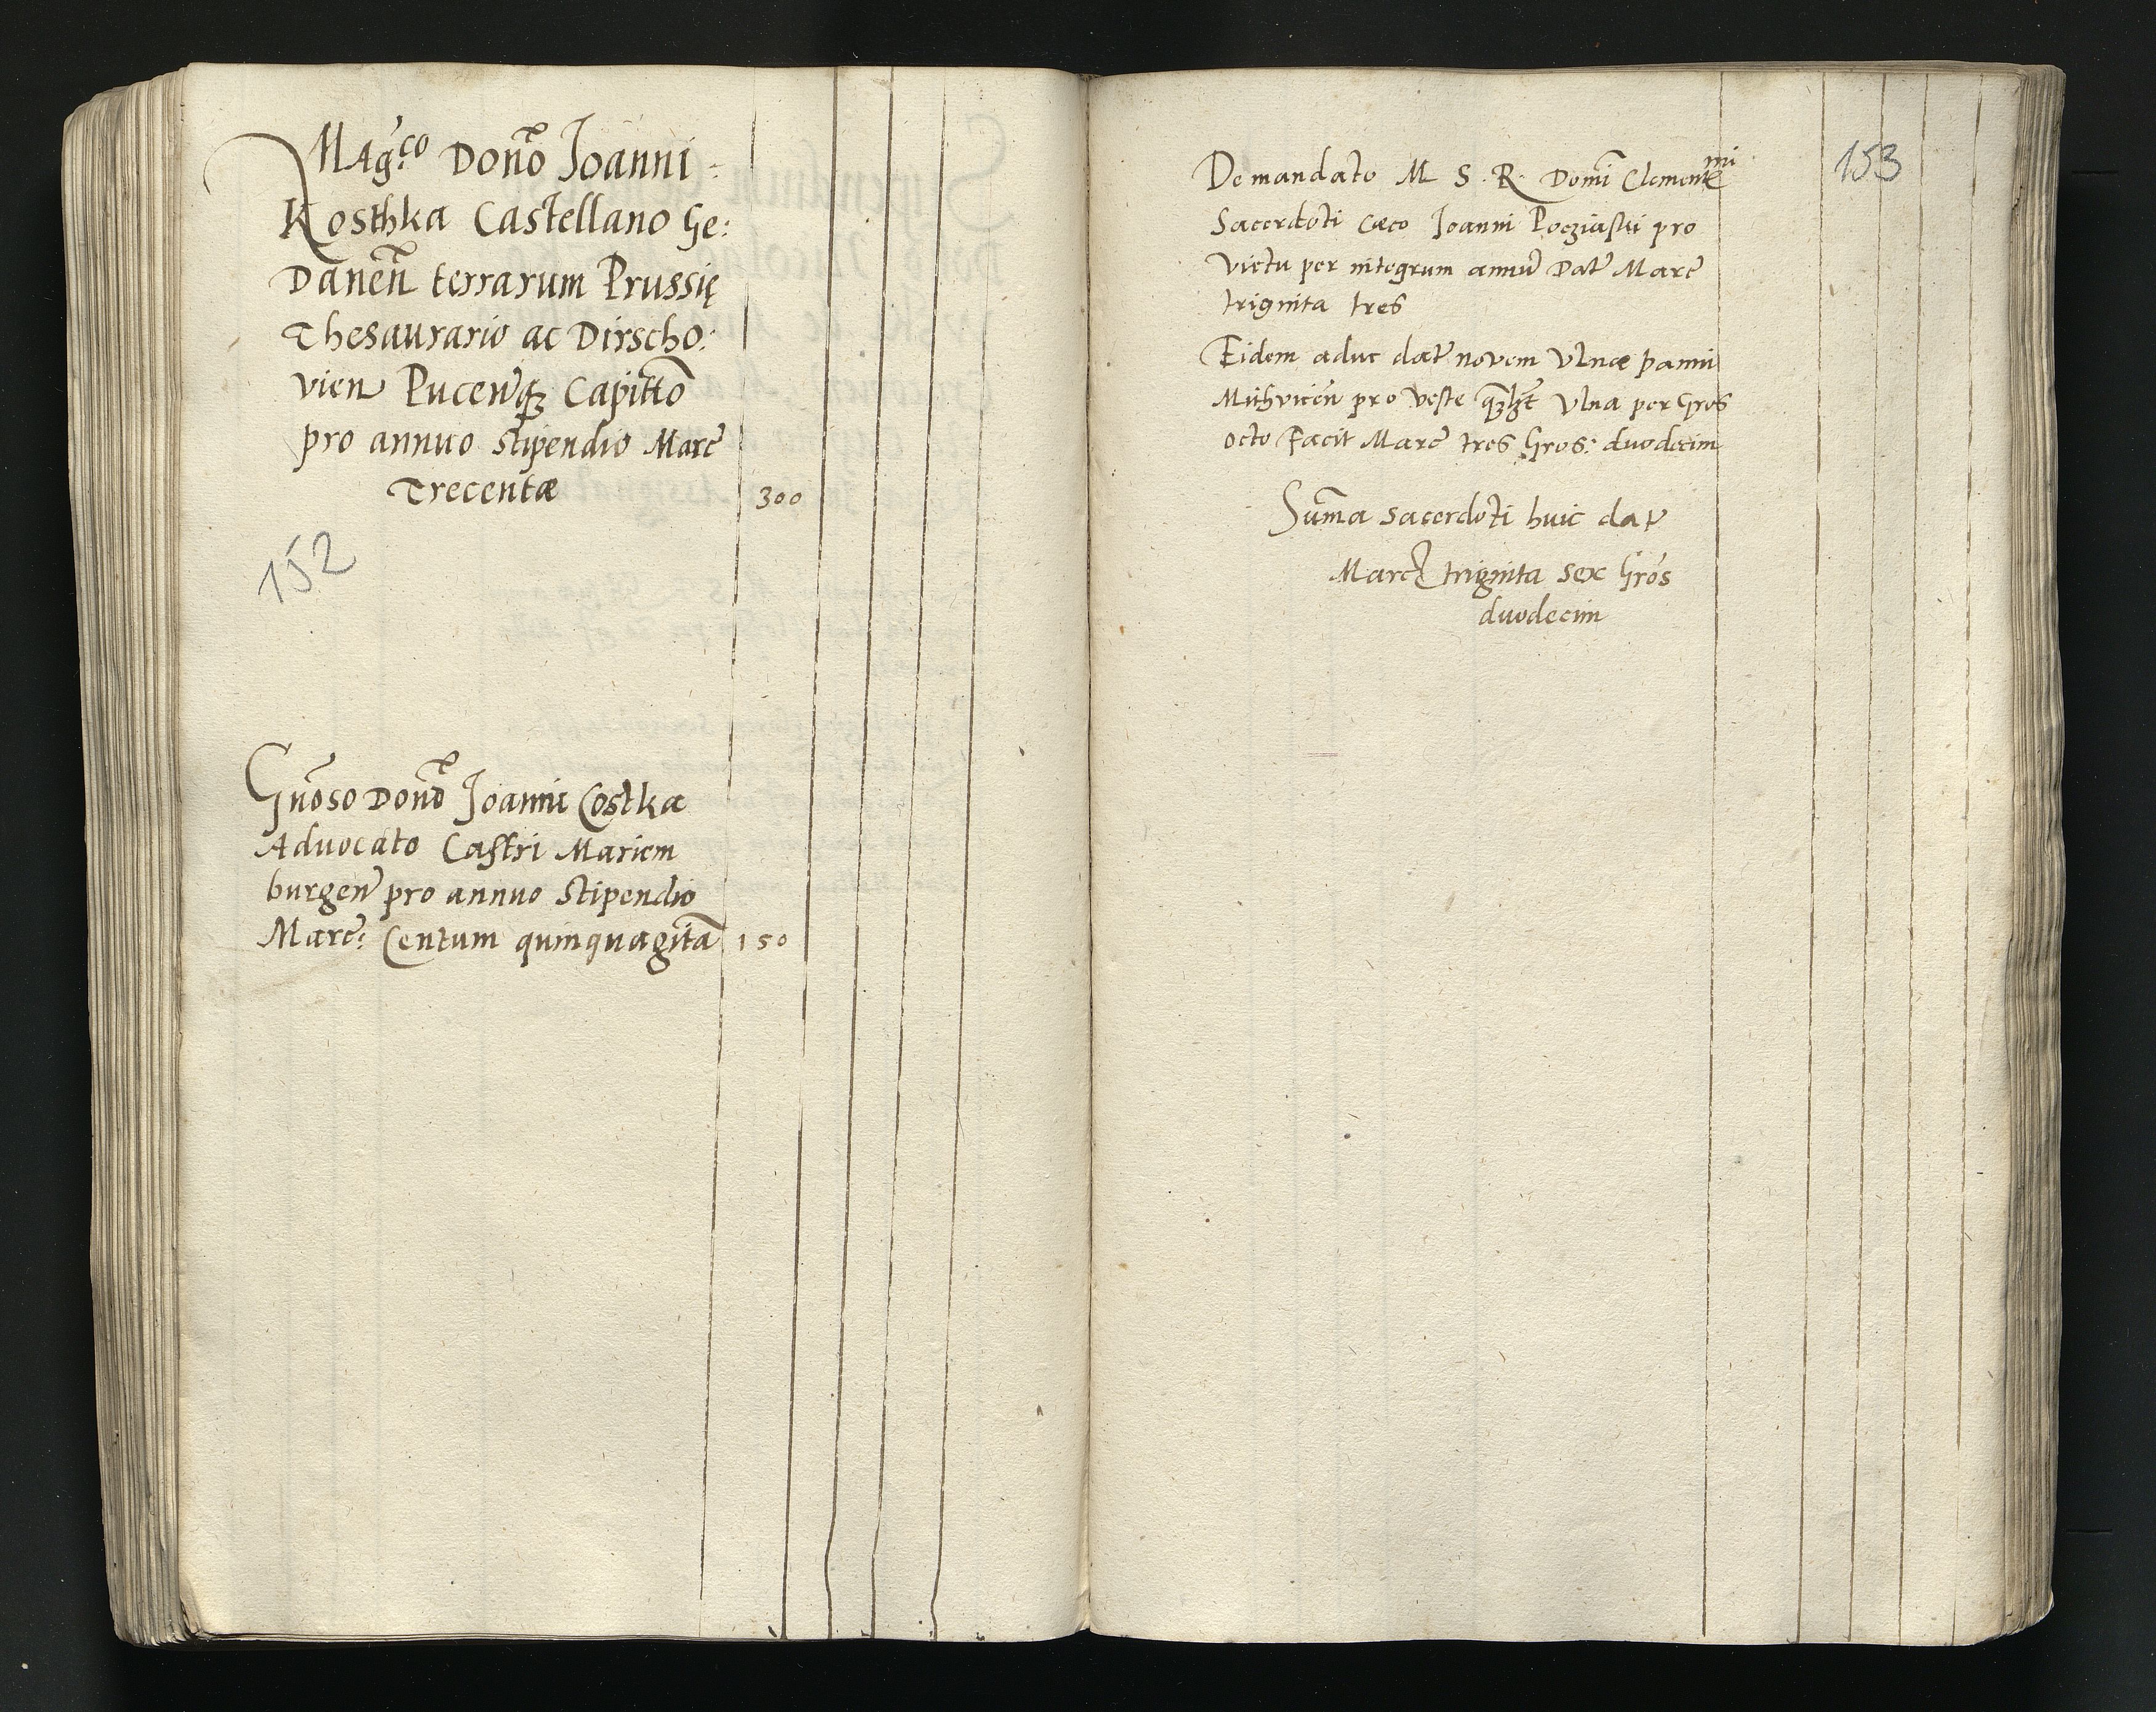 Mag:co Dono Joanni
Kosthka Castellano Ge:
Danen terrarum Prussię
Thesaurario ac Dirscho:
vien Pucenq3 Capitto
pro annuo stipendio Marc
Trecentæ 300
152
Gnoso Dono Joanni Costka
Advocato Castri Mariem
burgen pro annuo stipendio
Marc: Centum quinquaginta 150
153
De mandato M S. R. Domi Clemenmi
Sacerdoti cæco Joanni pro
victu per integrum annu Dat Marc
triginta tres
Eidem aduc dat novem Vlnæ panni
pro veste Vlna per Gros
octo Facit Marc tres Gros: duodecim
Suma sacerdoti huic dat
Marc triginta sex Gros
duodecim